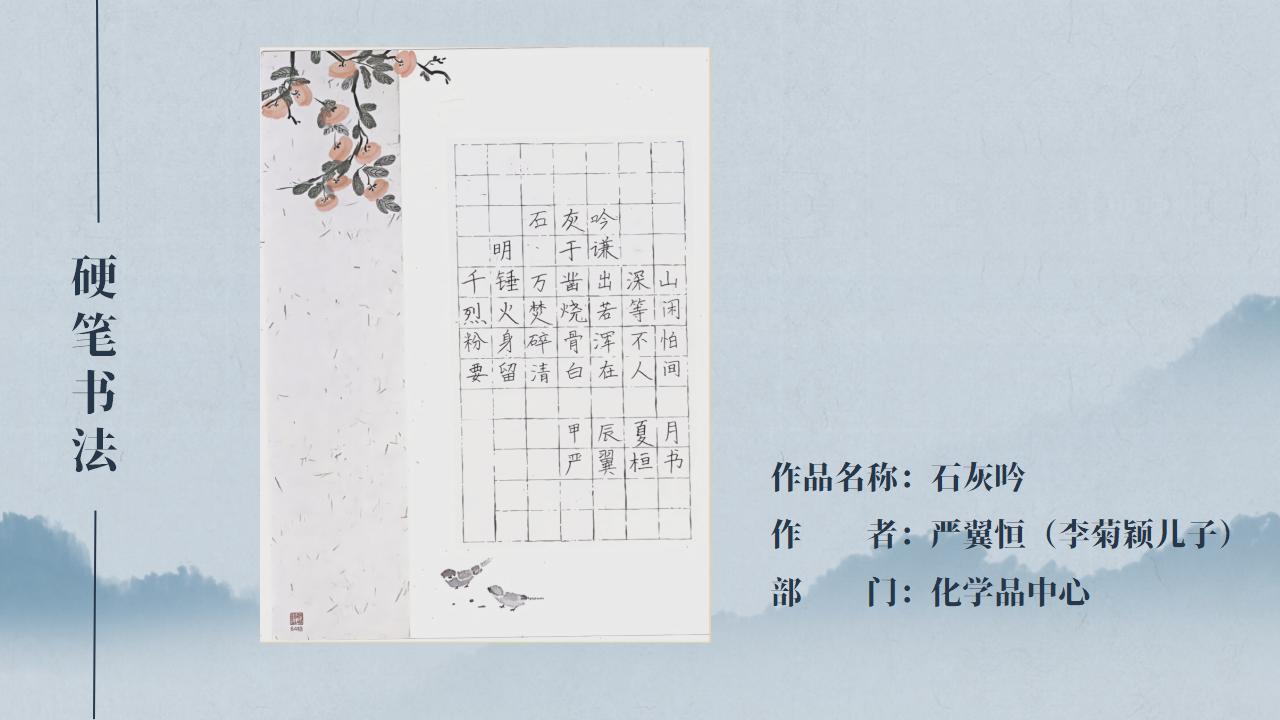 硬笔书法
石灰吟
明·于谦
千锤万凿出深山
烈火焚烧若等闲
粉身碎骨浑不怕
要留清白在人间
甲辰夏月
严翼桓书
作品名称：石灰吟
作 者：严翼恒（李菊颖儿子）
部 门：化学品中心